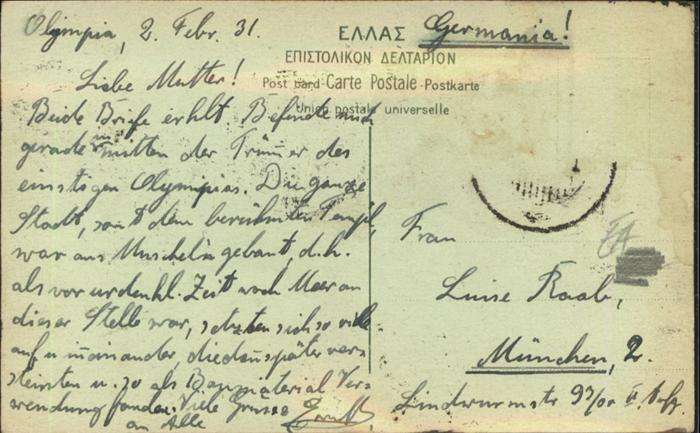 Olympia, 2. Febr. 31.
ΕΛΛΑΣ Germania!
ΕΠΙΣΤΟΛΙΚΟΝ ΔΕΛΤΑΡΙΟΝ
Post card Carte Postale - Postkarte
Union postale universelle
Liebe Mutter!
Beide Briefe erhlt. Befinde mich
gerade inmitten der Trüm̄er des
einstigen Olympias. Die ganze
Stadt, samt dem berühmten Tempel,
war aus Muscheln gebaut, d.h.
als vor urdenkl. Zeit noch Meer an
dieser Stelle war, setzten sich so viele
auf einander, die dan̄ später ver=
steinten u. so als Baumaterial Ver=
wendung fanden. Viele Grüsse Ernst
an Alle
Frau
Luise Raab,
München, 2.
Lindwurmstr 93/00 II.